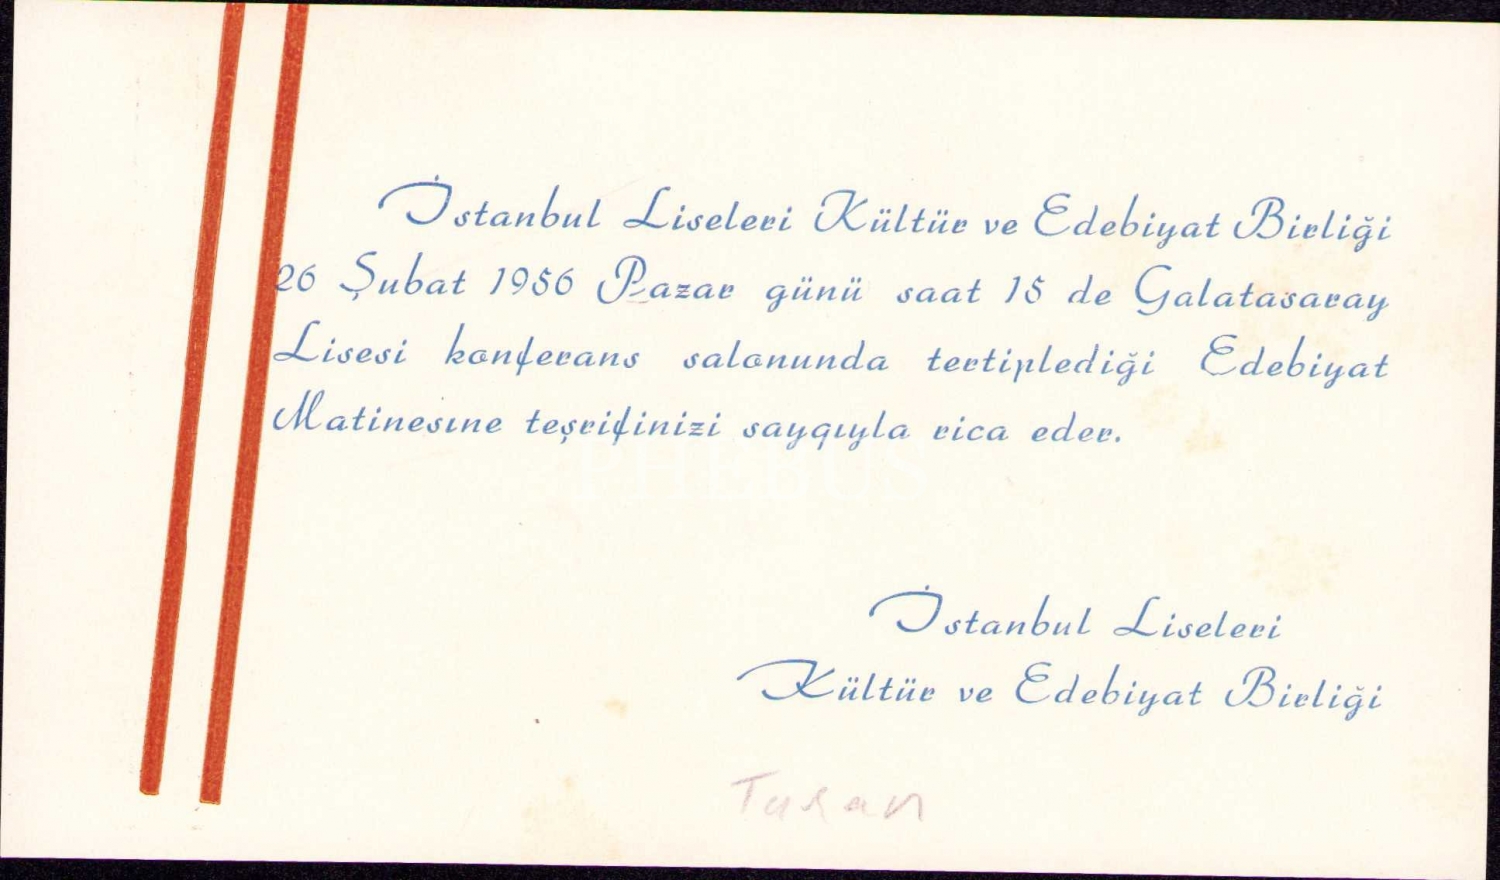 İstanbul Liseleri Kültür ve Edebiyat Birliği
26 Şubat 1956 Pazar günü saat 15 de Galatasaray
Lisesi konferans salonunda tertiplediği Edebiyat
Matinesine teşrifinizi saygıyla rica eder.
PHEBUS
İstanbul Liseleri
Kültür ve Edebiyat Birliği
Turan